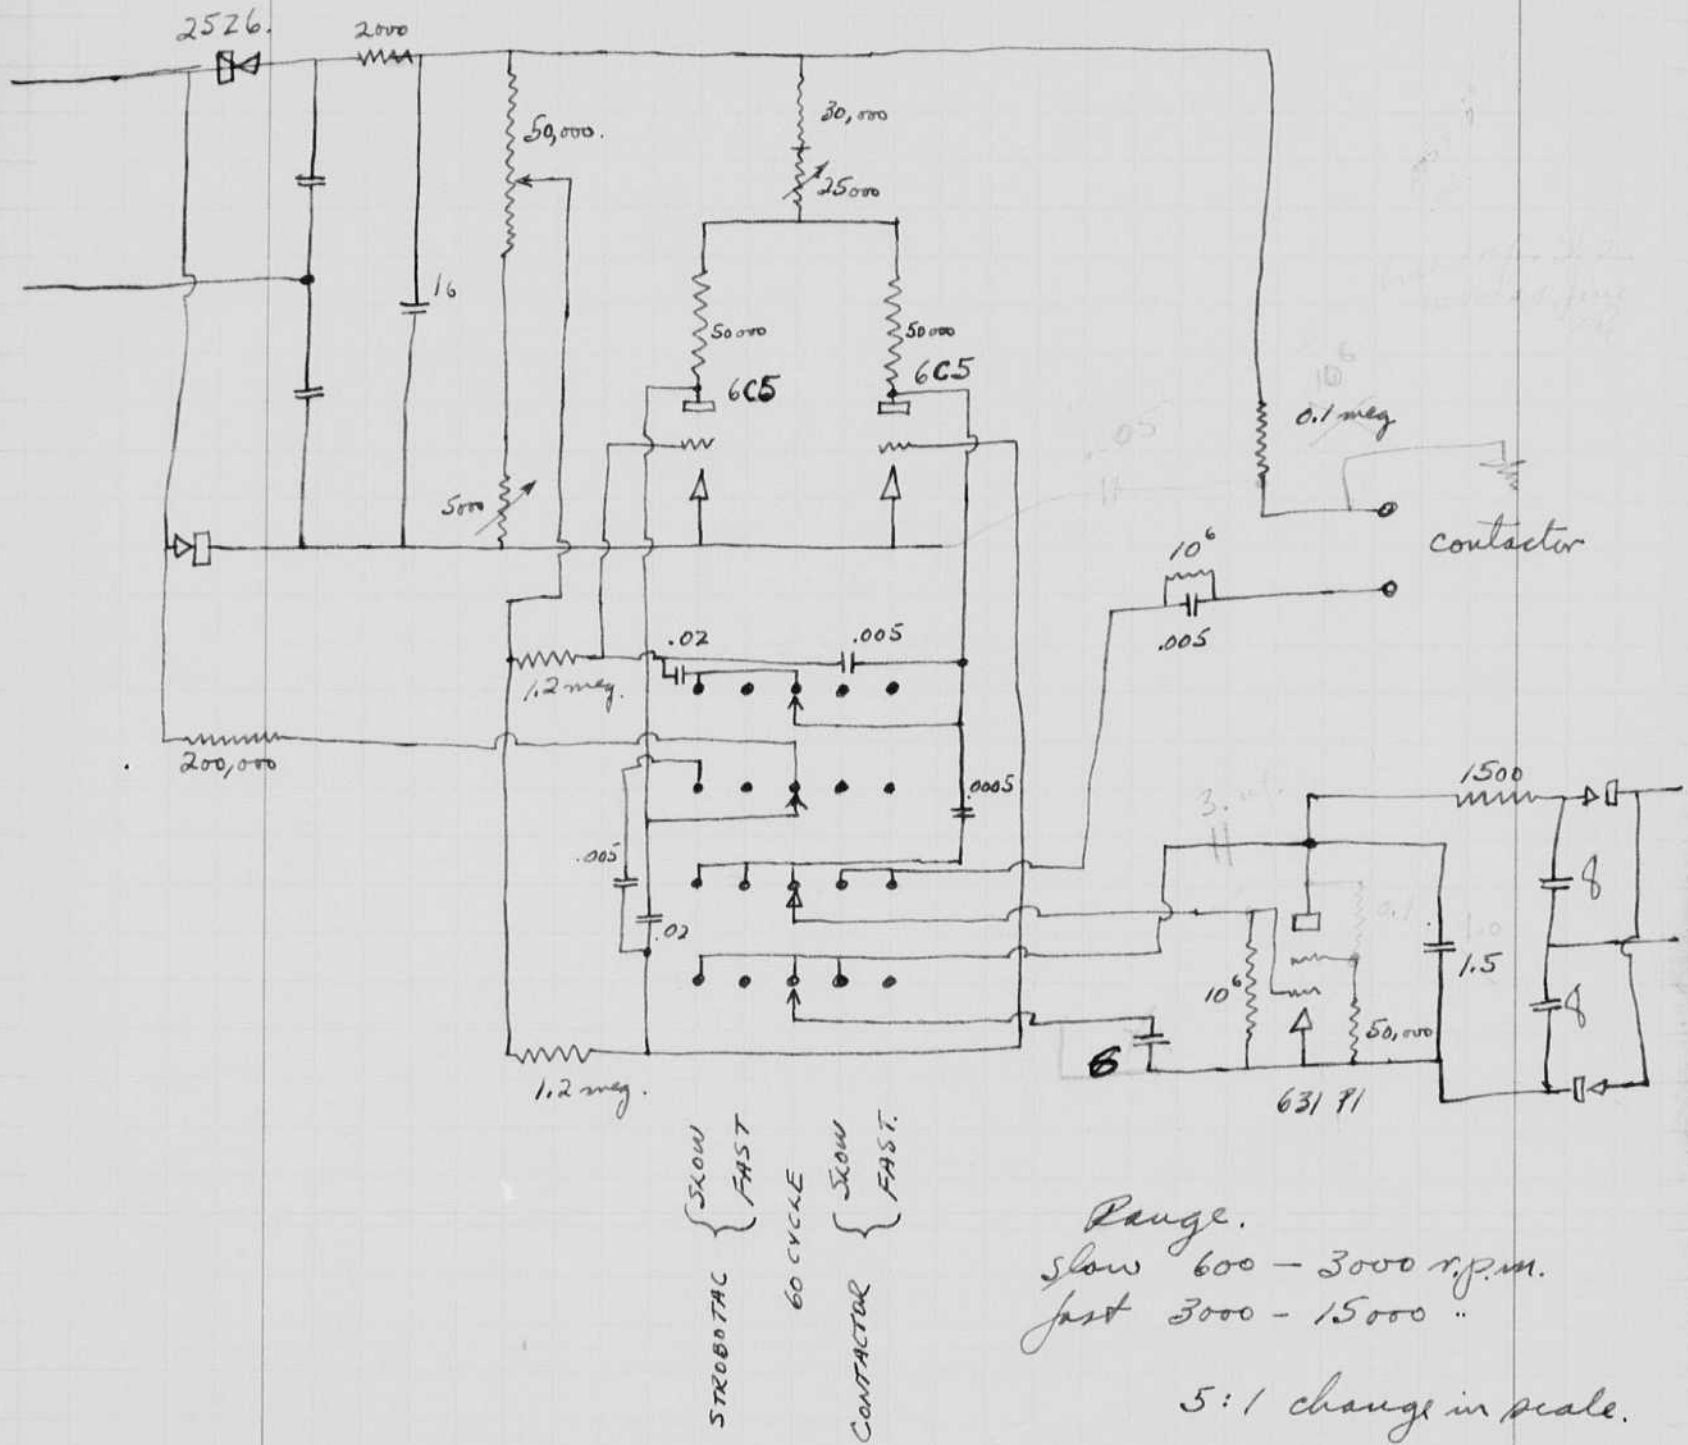 25Z6.
2000
50,000.
30,000
25000
16
50000
50000
6C5
6C5
0.1 meg
5000
contactor
10⁶
.005
.02
.005
1.2 meg.
200,000
.0005
1500
3.
.005
8
.02
1.5
10⁶
8
50,000
6
1.2 meg.
631 P1
.05
10⁶
0.1
STROBOTAC { SLOW
FAST
60 CYCLE
CONTACTOR { SLOW
FAST.
Range.
slow 600 - 3000 r.p.m.
fast 3000 - 15000 "
5:1 change in scale.